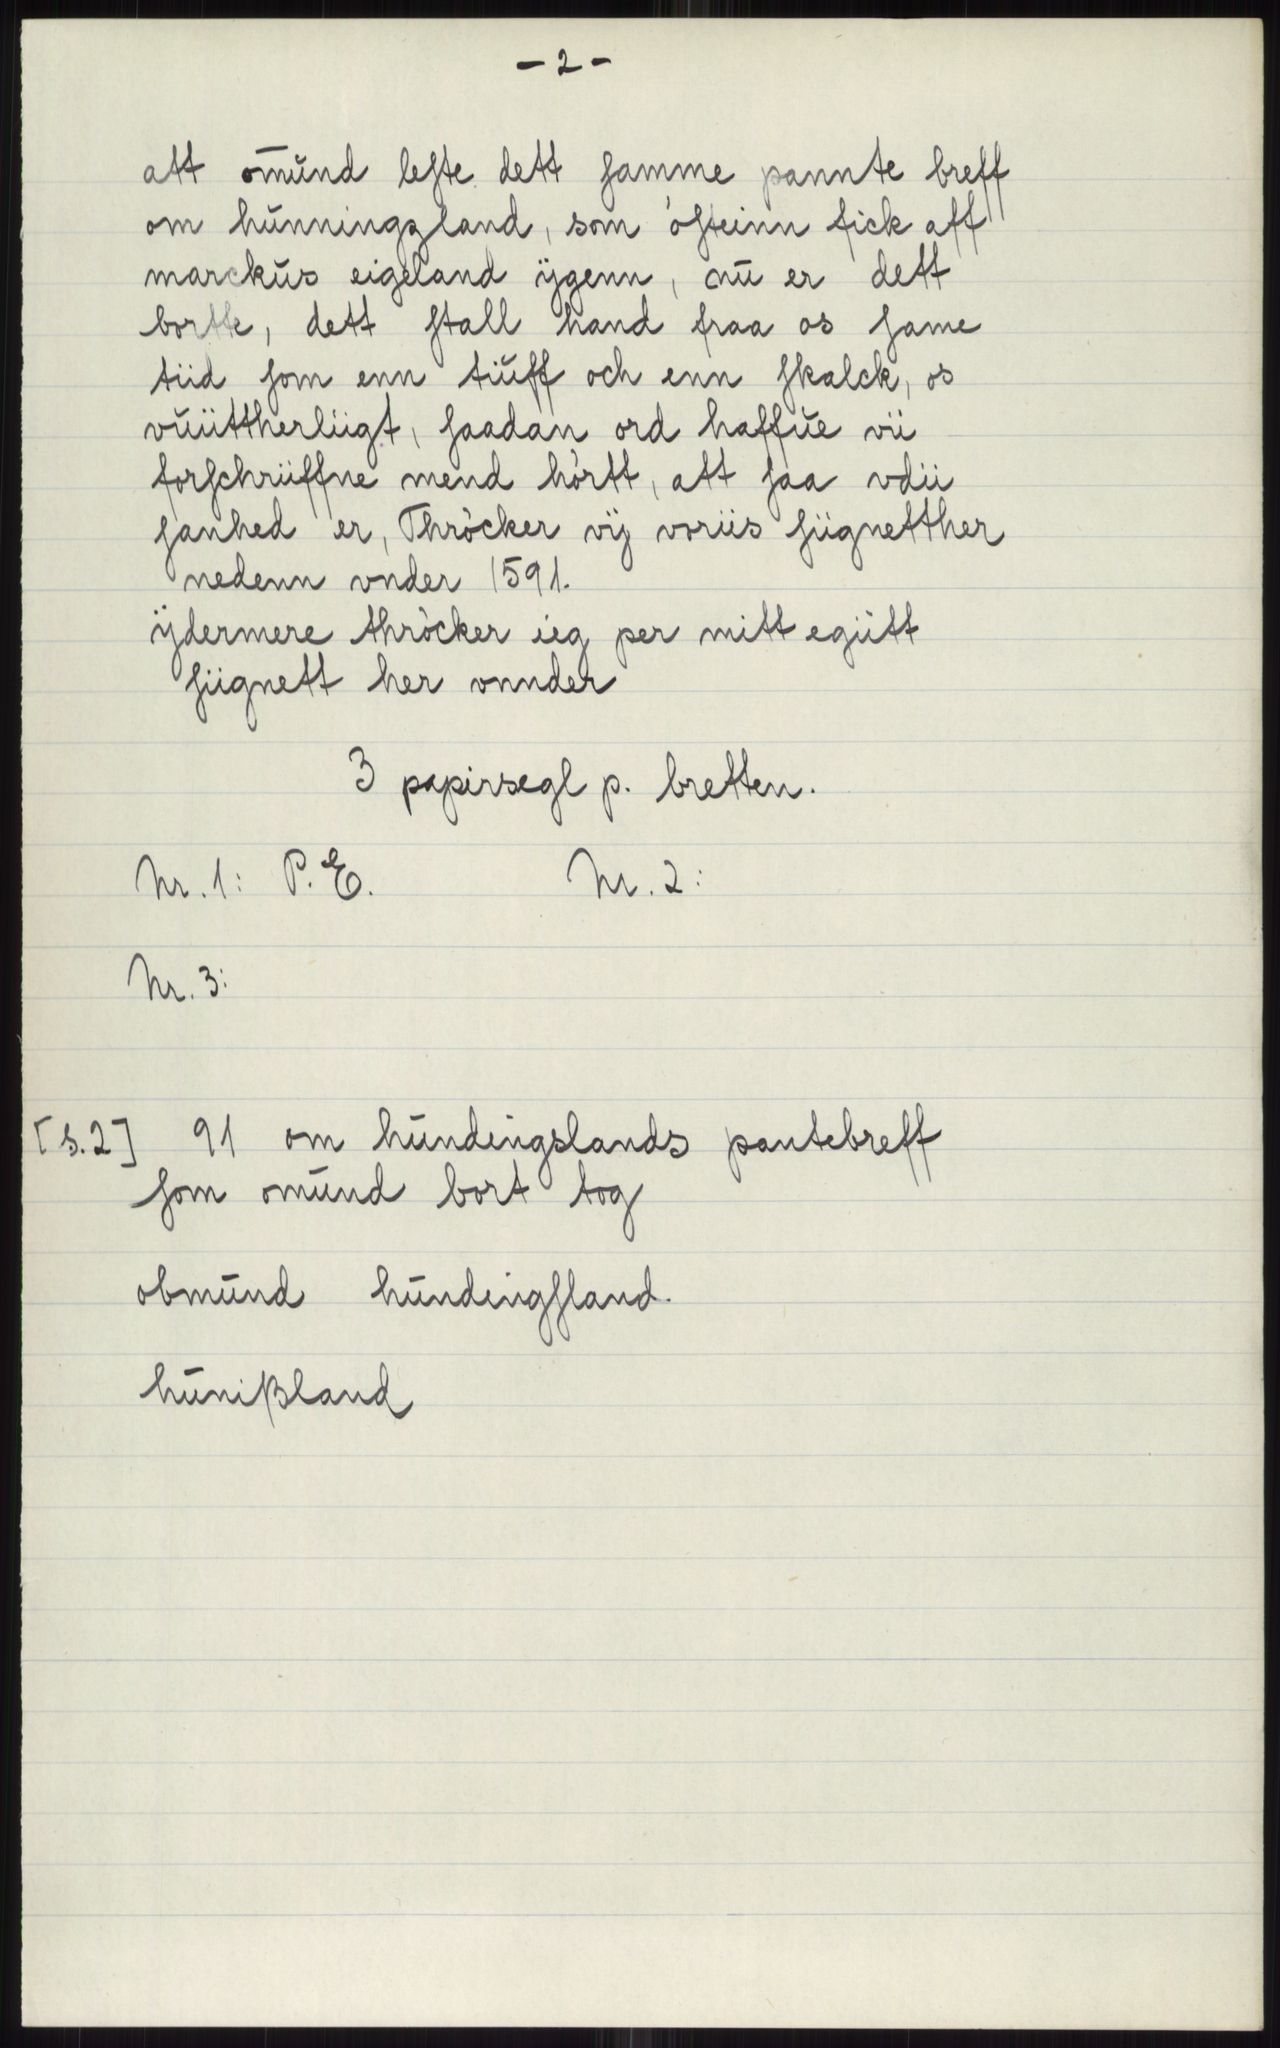 - 2 -
att om̄ŭnd leſte dett ſamme pannte breff
om hŭnningzland, som óſteinn fick aff
marckŭs eigeland ÿgenn, nŭ er dett
bortte, dett ſtall hand fraa os ſame
tiid ſom enn tiŭff och enn ſkalck, os
vŭüttherliigt, ſaadan ord haffŭe vii
forſchriiffne mend hórtt, att ſaa vdii
ſanhed er, Thrócker vij voriis ſiignetther
nedenn vnder 1591.
ÿdermere thrócker ieg per mitt egiitt
ſiignett her vnnder
3 papirsegl p. bretten.
Nr. 1: P. E. Nr. 2:
Nr. 3:
[s. 2] 91 om hūndingslands pantebreff
ſom omūnd bort tog
obmūnd hūndingſland.
hūnißland